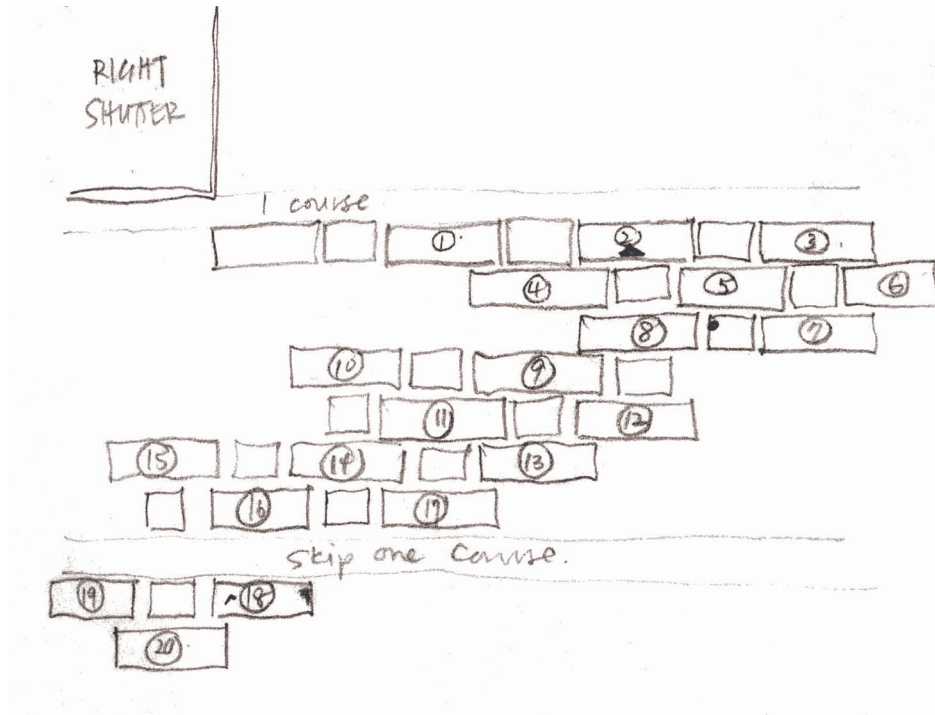 RIGHT
SHUTTER
1 course
① ② ③
④ ⑤ ⑥
⑧ ⑦
⑩ ⑨
⑪ ⑫
⑮ ⑭ ⑬
⑯ ⑰
Skip one Course.
⑲ ⑱
⑳